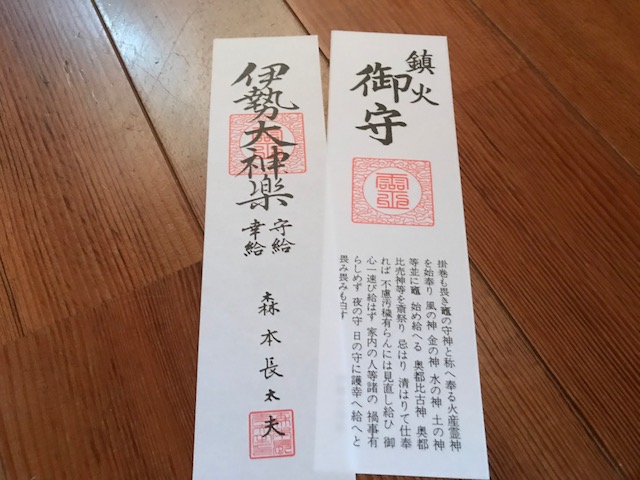 鎮火
御守
掛巻も畏き竈の守神と称へ奉る火産霊神
を始奉り 風の神 金の神 水の神 土の神
等並に竈 始め給へる 奥都比古神 奥都
比売神等を斎祭り 忌はり 清はりて仕奉
れば 不慮汚穢有らんには見直し給ひ 御
心一速び給はず 家内の人等諸の 禍事有
らしめず 夜の守 日の守に護幸へ給へと
畏み畏みも白す
伊勢大神楽
守給
幸給
森本長太夫